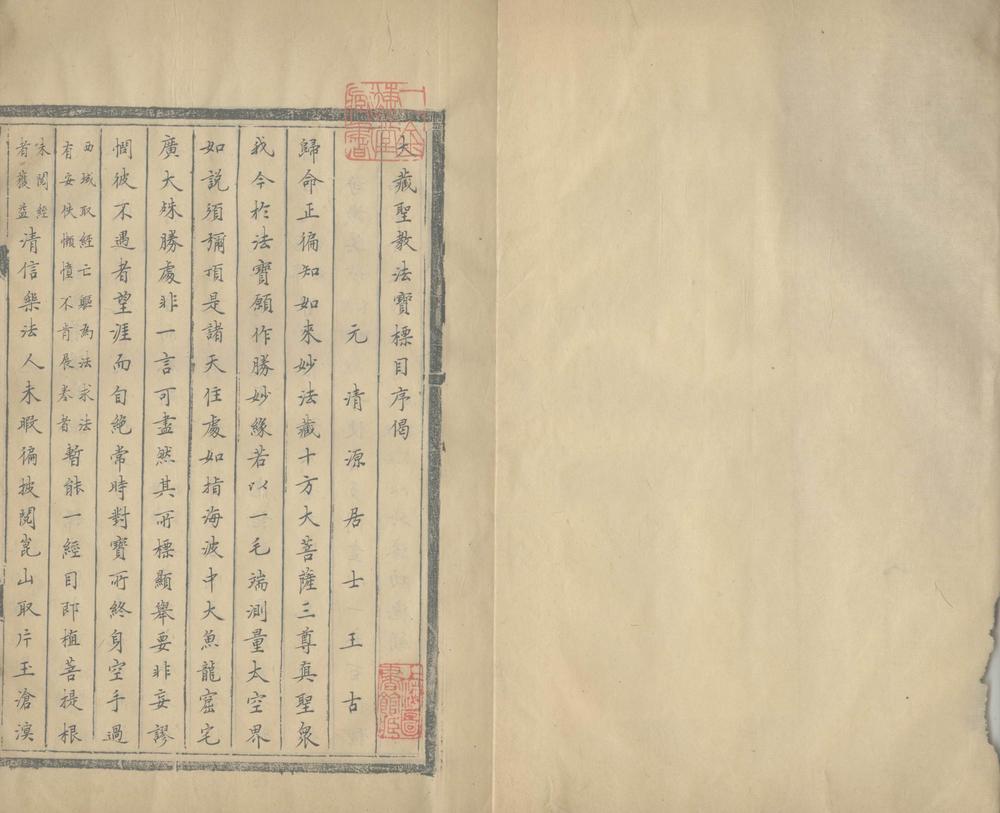 大藏聖教法寶標目序偈
元清源居士王古
歸命正徧知如來妙法藏十方大菩薩三尊真聖眾
我今於法寶願作勝妙緣若以一毛端測量太空界
如說須彌頂是諸天住處如指海波中大魚龍窟宅
廣大殊勝處非一言可盡然其所標顯舉要非妄謬
憫彼不遇者望涯而自絶常時對寶所終身空手過
西域取經亡軀為法求法
有安佚懶惰不肯展卷者
暫能一經目即植菩提根
未閱經
者獲益
清信樂法人未暇徧披閱崑山取片玉滄溟